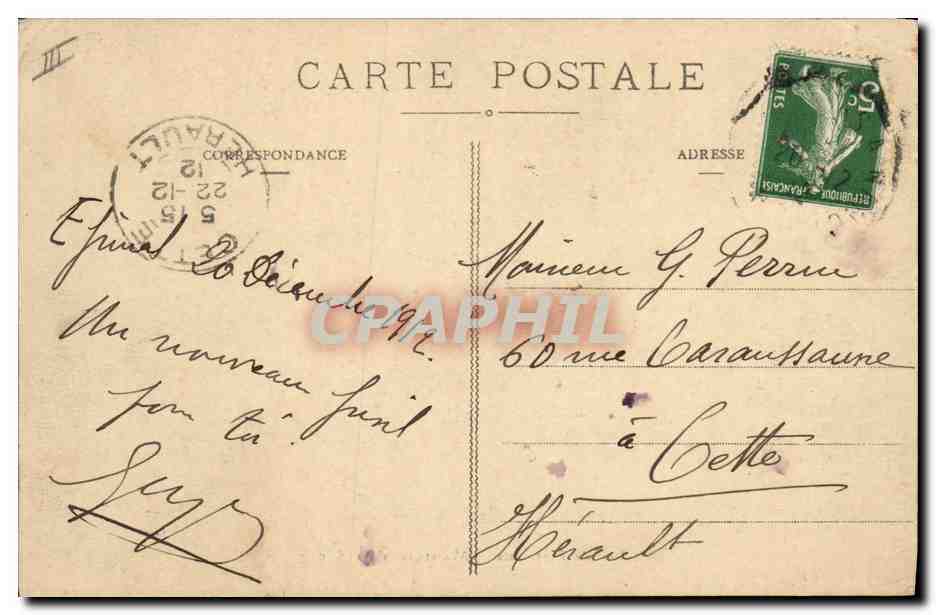 III
CARTE POSTALE
CORRESPONDANCE
ADRESSE
5c
POSTES
REPUBLIQUE FRANCAISE
HERAULT
5 15
22-12
12
Epinal 20 Décembre 1912.
Un nouveau fusil
pour toi.
Monsieur G. Perrin
60 rue Caraussanne
à
Cette
Hérault
CPAPHIL